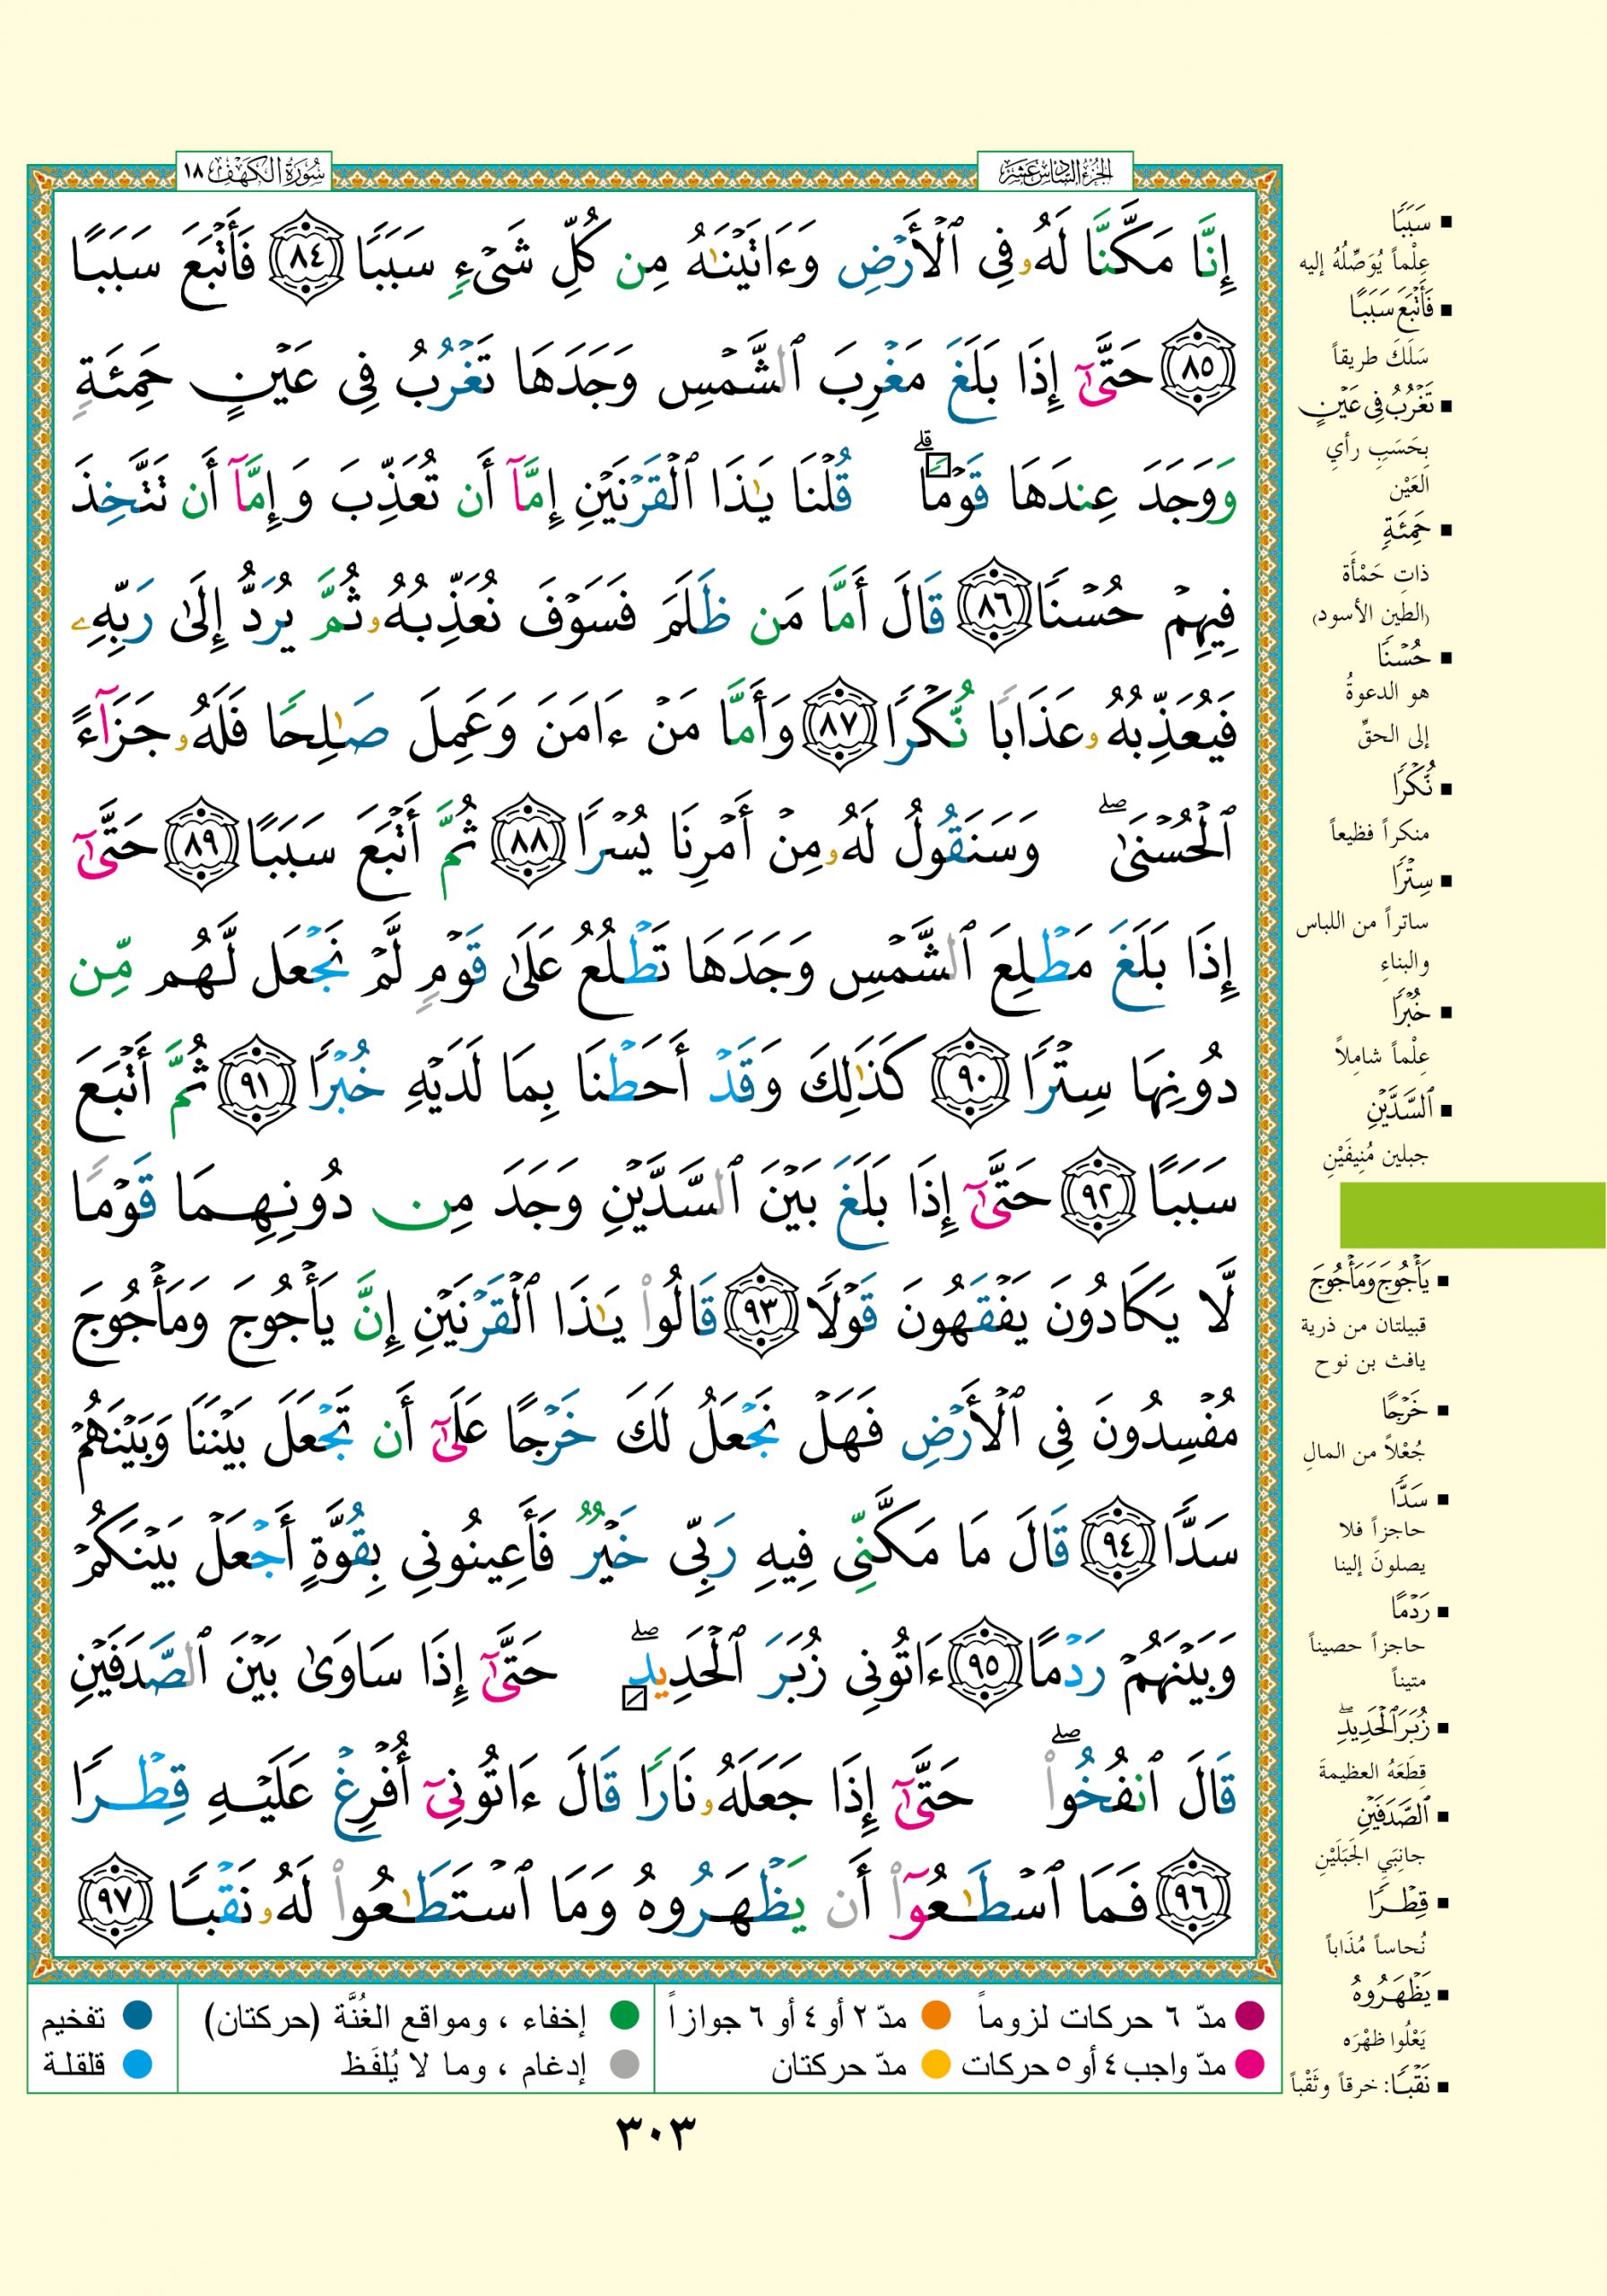 الجزء السادس عشر
سورة الكهف ١٨
إِنَّا مَكَّنَّا لَهُۥ فِى ٱلْأَرْضِ وَءَاتَيْنَٰهُ مِن كُلِّ شَىْءٍ سَبَبًا ٨٤ فَأَتْبَعَ سَبَبًا
٨٥ حَتَّىٰٓ إِذَا بَلَغَ مَغْرِبَ ٱلشَّمْسِ وَجَدَهَا تَغْرُبُ فِى عَيْنٍ حَمِئَةٍ
وَوَجَدَ عِندَهَا قَوْمًا ۗ قُلْنَا يَٰذَا ٱلْقَرْنَيْنِ إِمَّآ أَن تُعَذِّبَ وَإِمَّآ أَن تَتَّخِذَ
فِيهِمْ حُسْنًا ٨٦ قَالَ أَمَّا مَن ظَلَمَ فَسَوْفَ نُعَذِّبُهُۥ ثُمَّ يُرَدُّ إِلَىٰ رَبِّهِۦ
فَيُعَذِّبُهُۥ عَذَابًا نُّكْرًا ٨٧ وَأَمَّا مَنْ ءَامَنَ وَعَمِلَ صَٰلِحًا فَلَهُۥ جَزَآءً
ٱلْحُسْنَىٰ ۖ وَسَنَقُولُ لَهُۥ مِنْ أَمْرِنَا يُسْرًا ٨٨ ثُمَّ أَتْبَعَ سَبَبًا ٨٩ حَتَّىٰٓ
إِذَا بَلَغَ مَطْلِعَ ٱلشَّمْسِ وَجَدَهَا تَطْلُعُ عَلَىٰ قَوْمٍ لَّمْ نَجْعَل لَّهُم مِّن
دُونِهَا سِتْرًا ٩٠ كَذَٰلِكَ وَقَدْ أَحَطْنَا بِمَا لَدَيْهِ خُبْرًا ٩١ ثُمَّ أَتْبَعَ
سَبَبًا ٩٢ حَتَّىٰٓ إِذَا بَلَغَ بَيْنَ ٱلسَّدَّيْنِ وَجَدَ مِن دُونِهِمَا قَوْمًا
لَّا يَكَادُونَ يَفْقَهُونَ قَوْلًا ٩٣ قَالُوا۟ يَٰذَا ٱلْقَرْنَيْنِ إِنَّ يَأْجُوجَ وَمَأْجُوجَ
مُفْسِدُونَ فِى ٱلْأَرْضِ فَهَلْ نَجْعَلُ لَكَ خَرْجًا عَلَىٰٓ أَن تَجْعَلَ بَيْنَنَا وَبَيْنَهُمْ
سَدًّا ٩٤ قَالَ مَا مَكَّنِّى فِيهِ رَبِّى خَيْرٌ فَأَعِينُونِى بِقُوَّةٍ أَجْعَلْ بَيْنَكُمْ
وَبَيْنَهُمْ رَدْمًا ٩٥ ءَاتُونِى زُبَرَ ٱلْحَدِيدِ ۖ حَتَّىٰٓ إِذَا سَاوَىٰ بَيْنَ ٱلصَّدَفَيْنِ
قَالَ ٱنفُخُوا۟ ۖ حَتَّىٰٓ إِذَا جَعَلَهُۥ نَارًا قَالَ ءَاتُونِىٓ أُفْرِغْ عَلَيْهِ قِطْرًا
٩٦ فَمَا ٱسْطَٰعُوٓا۟ أَن يَظْهَرُوهُ وَمَا ٱسْتَطَٰعُوا۟ لَهُۥ نَقْبًا ٩٧
سَبَبًا
عِلْماً يُوَصِّلُهُ إليه
فَأَتْبَعَ سَبَبًا
سَلَكَ طريقاً
تَغْرُبُ فِى عَيْنٍ
بِحَسَبِ رأيِ
العَيْن
حَمِئَةٍ
ذاتِ حَمْأَة
(الطين الأسود)
حُسْنًا
هو الدعوةُ
إلى الحقِّ
نُّكْرًا
منكراً فظيعاً
سِتْرًا
ساتراً من اللباس
والبناءِ
خُبْرًا
عِلْماً شامِلاً
ٱلسَّدَّيْنِ
جبلين مُنِيفَيْنِ
يَأْجُوجَ وَمَأْجُوجَ
قبيلتان من ذرية
يافث بن نوح
خَرْجًا
جُعْلاً من المالِ
سَدًّا
حاجزاً فلا
يصلونَ إلينا
رَدْمًا
حاجزاً حصيناً
متيناً
زُبَرَ ٱلْحَدِيدِ ۖ
قِطَعَهُ العظيمةَ
ٱلصَّدَفَيْنِ
جانِبَيِ الجَبَلَيْنِ
قِطْرًا
نُحاساً مُذَاباً
يَظْهَرُوهُ
يَعْلُوا ظهْرَه
نَقْبًا: خرقاً وثَقْباً
مدّ ٦ حركات لزوماً
مدّ ٢ أو ٤ أو ٦ جوازاً
إخفاء ، ومواقع الغُنَّة (حركتان)
تفخيم
مدّ واجب ٤ أو ٥ حركات
مدّ حركتان
إدغام ، وما لا يُلفَظ
قلقلة
٣٠٣